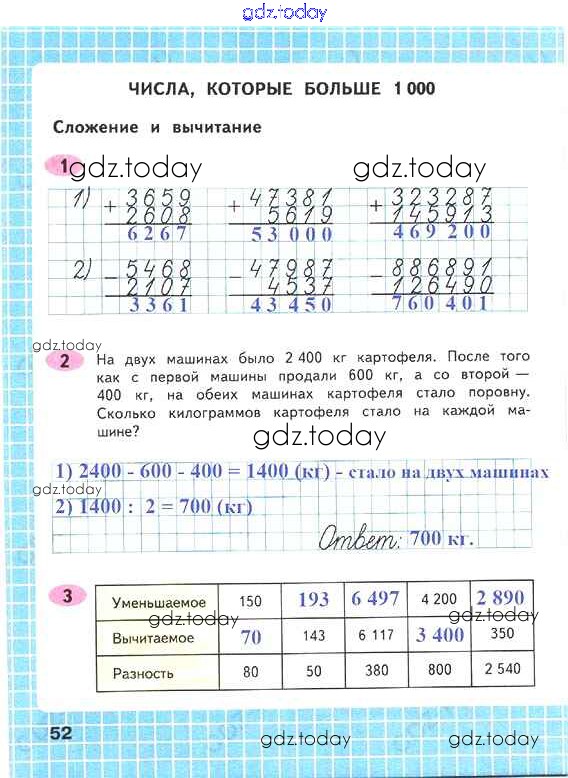 gdz.today
ЧИСЛА, КОТОРЫЕ БОЛЬШЕ 1 000
Сложение и вычитание
1
gdz.today gdz.today
1) + 3659 + 47381 + 323287
2608 5619 145913
6267 53 000 469 200
2) - 5468 - 47987 - 886891
2107 4537 126490
3361 43 450 760 401
gdz.today
2 На двух машинах было 2 400 кг картофеля. После того
как с первой машины продали 600 кг, а со второй —
400 кг, на обеих машинах картофеля стало поровну.
Сколько килограммов картофеля стало на каждой ма-
шине?
gdz.today
1) 2400 - 600 - 400 = 1400 (кг) - стало на двух машинах
gdz.today
2) 1400 : 2 = 700 (кг)
Ответ: 700 кг.
3
Уменьшаемое 150 193 6 497 4 200 2 890
gdz.today gdz.today
Вычитаемое 70 143 6 117 3 400 350
Разность 80 50 380 800 2 540
52
gdz.today gdz.today